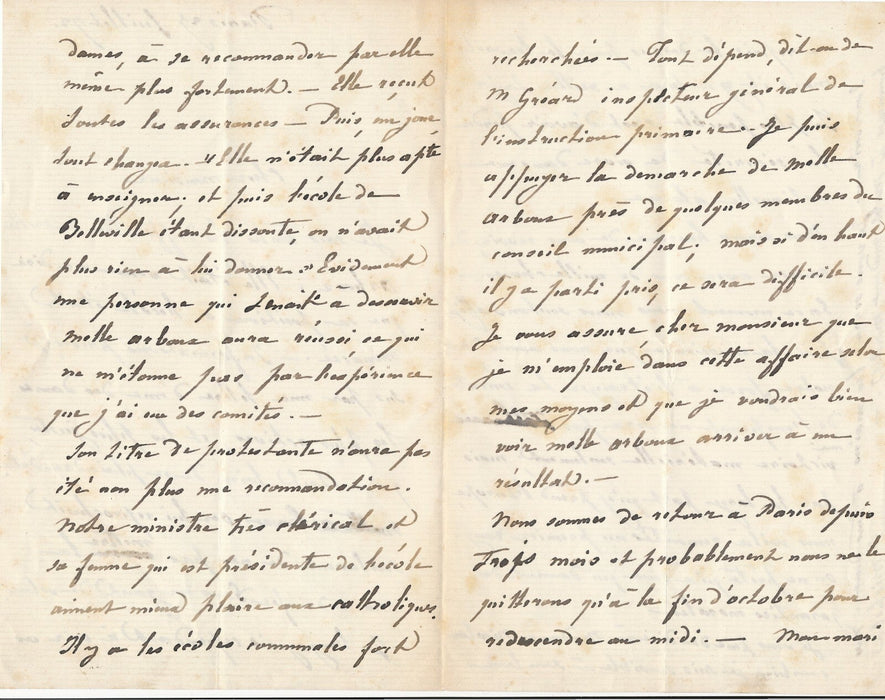 dames, à se recommander par elle
même plus fortement. — Elle reçut
toutes les assurances — Puis, un jour
tout changea. "Elle n'était plus apte
à enseigner. et puis l'école de
Belleville étant dissoute, on n'avait
plus rien à lui donner." Evidement
une personne qui tenait à desservir
Melle arbous aura réussi ce qui
ne m'étonne pas par l'expérience
que j'ai eue des comités. —
Son titre de protestante n'aura pas
été non plus une recommandation.
Notre ministre très clérical et
sa femme qui est présidente de l'école
aiment mieux plaire aux catholiques.
Il y a les écoles communales fort
recherchées. — Tout dépend, dit-on de
M Gréard inspecteur général de
l'instruction primaire. Je puis
appuyer la demarche de Melle
arbous près de quelques membres du
conseil municipal; mais si d'en haut
il y a parti pris, ce sera difficile.
Je vous assure, cher monsieur que
je m'emploie dans cette affaire selon
mes moyens et que je voudrais bien
voir melle arbous arriver à un
résultat. —
Nous sommes de retour à Paris depuis
Trois mois et probablement nous ne le
quitterons qu'à la fin d'octobre pour
redescendre au midi. — Mon mari